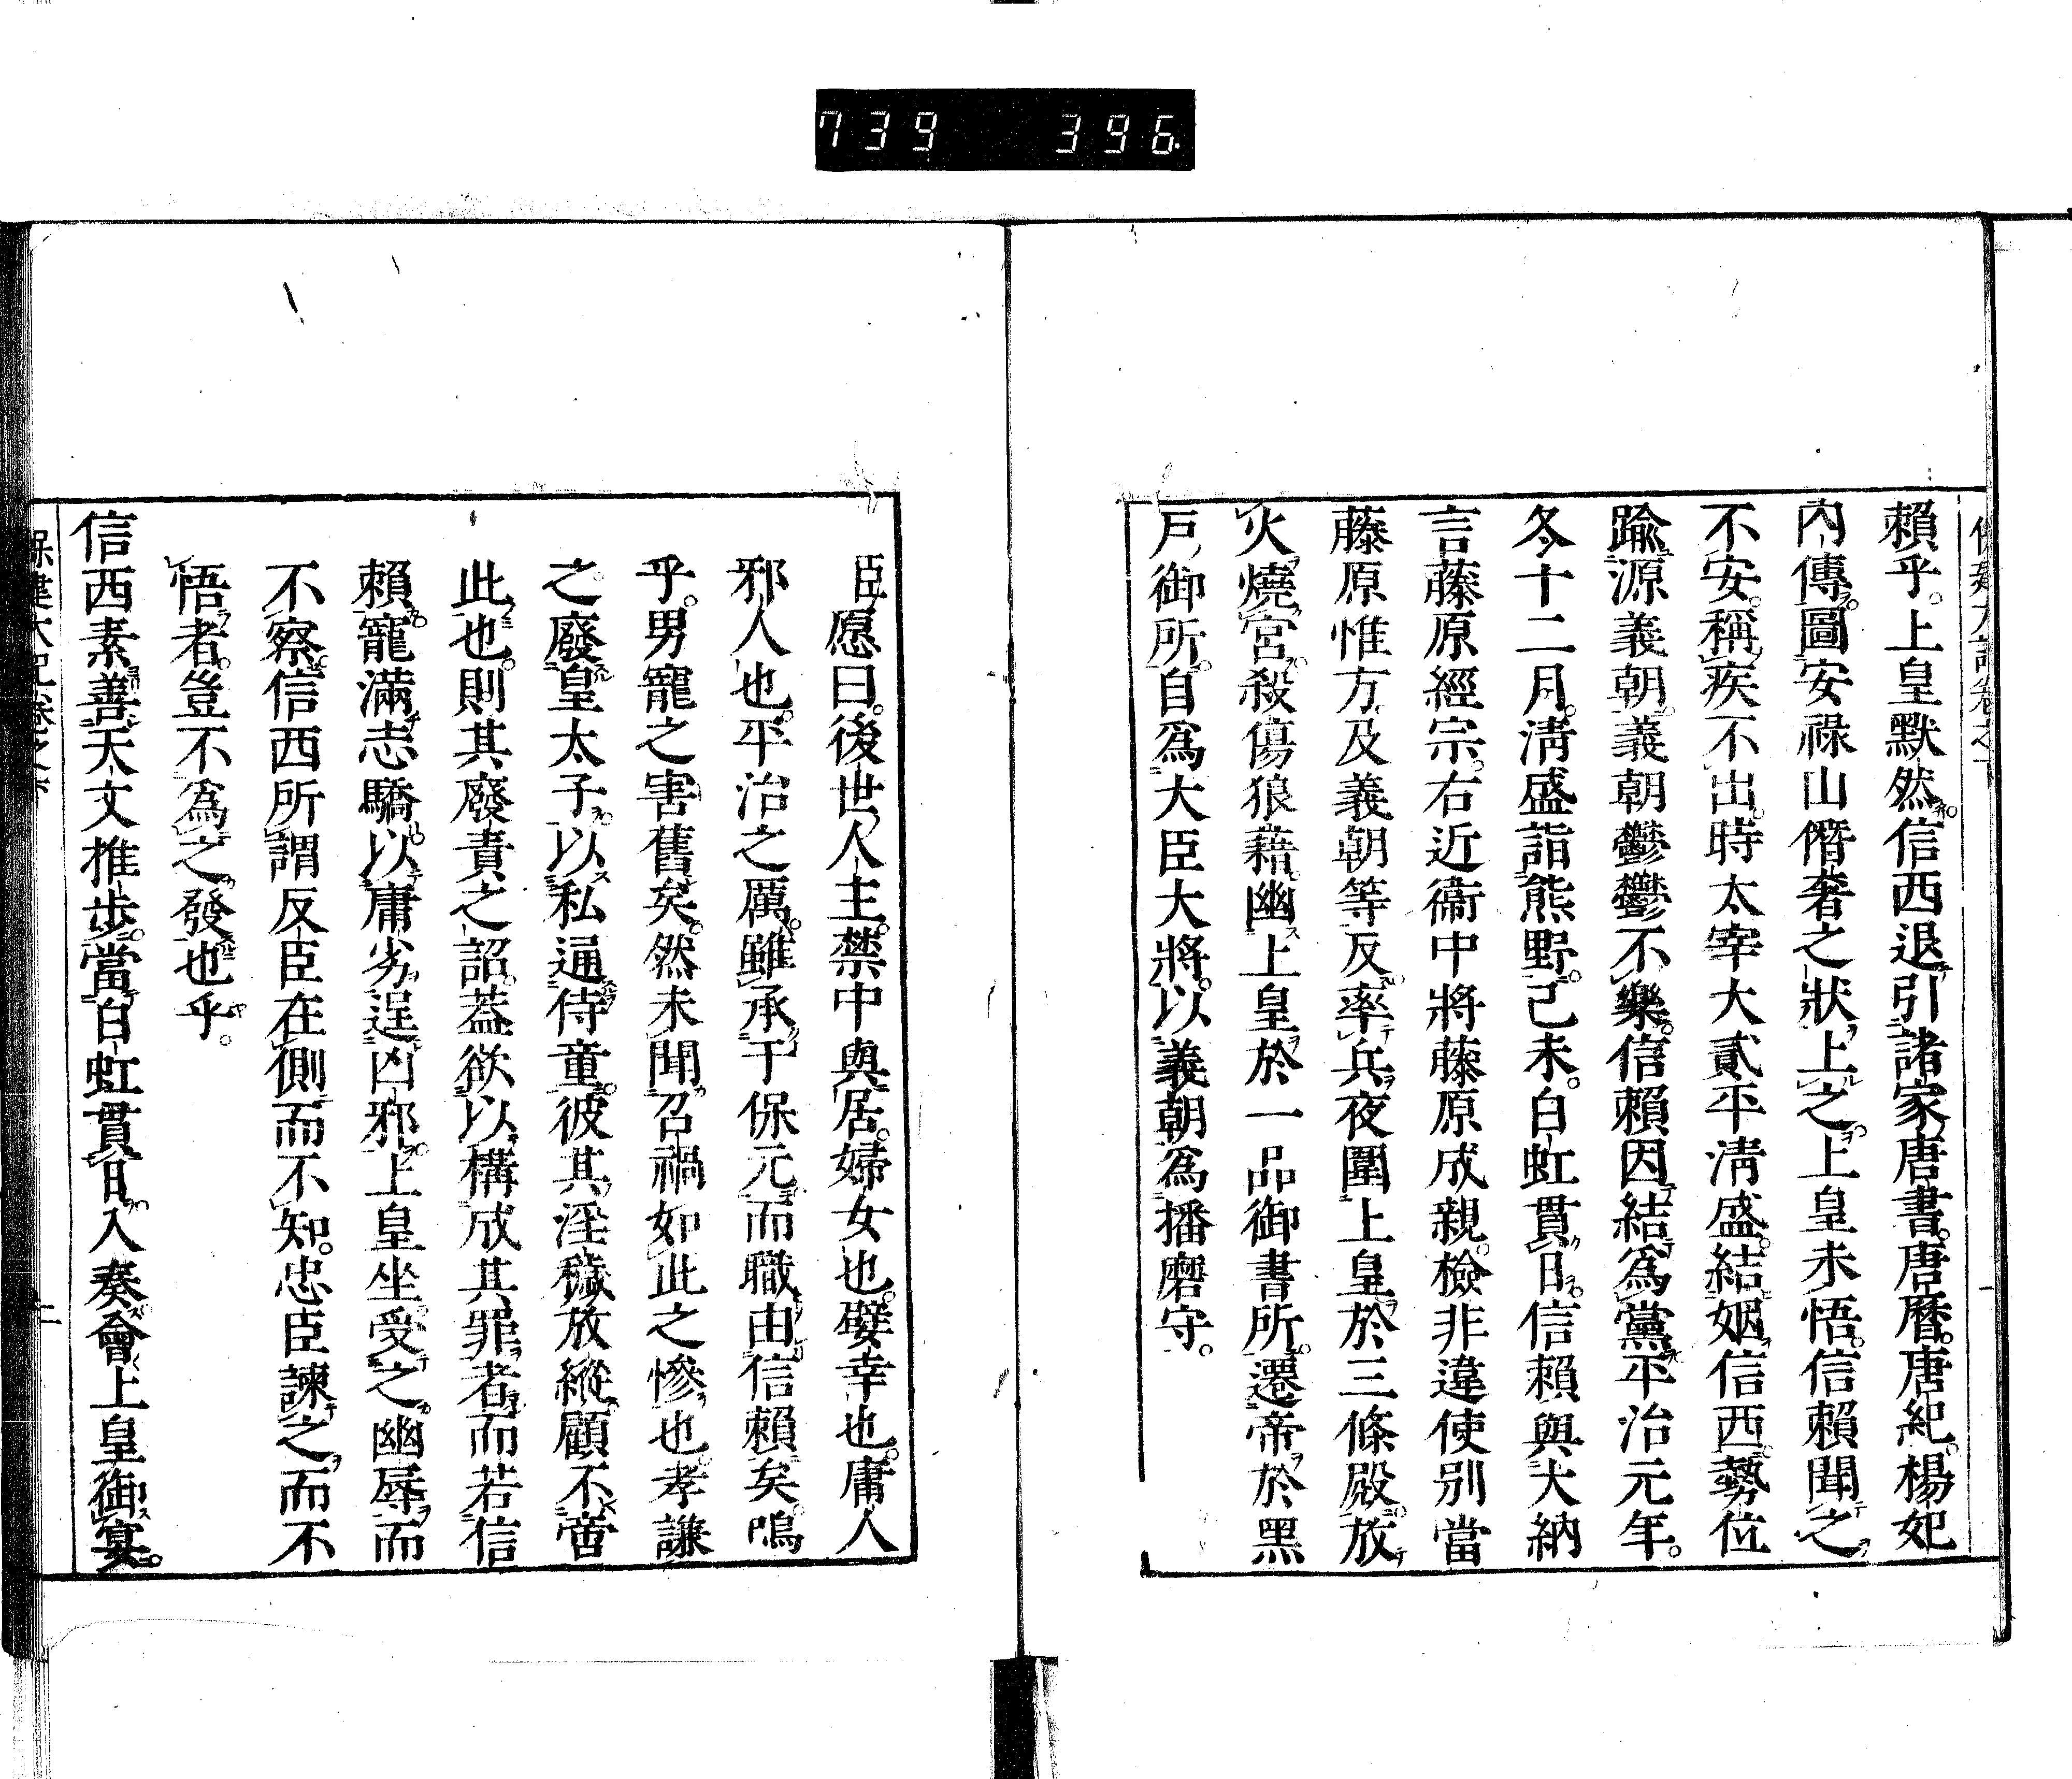 739 396
賴乎。上皇默然。信西退引諸家唐書。唐曆。唐紀。楊妃
內傳。圖安祿山僭奢之狀上之。上皇未悟。信賴聞之
不安。稱疾不出。時太宰大貳平淸盛。結姻信西。勢位
踰源義朝。義朝鬱鬱不樂。信賴因結爲黨。平治元年。
冬十二月。淸盛詣熊野。己未。白虹貫日。信賴與大納
言藤原經宗。右近衞中將藤原成親。檢非違使別當
藤原惟方。及義朝等反。率兵夜圍上皇於三條殿。放
火燒宮。殺傷狼藉。幽上皇於一品御書所。遷帝於黑
戶御所。自爲大臣大將。以義朝爲播磨守。
臣愿曰。後世人主。禁中與居。婦女也。嬖幸也。庸人
邪人也。平治之厲。雖承于保元。而職由信賴矣。嗚
乎。男寵之害舊矣。然未聞召禍如此之慘也。孝謙
之廢皇太子。以私通侍童。彼其淫穢放縱。顧不啻
此也。則其廢責之詔。蓋欲以構成其罪者。而若信
賴。寵滿志驕。以庸劣逞凶邪。上皇坐受之幽辱。而
不察信西所謂反臣在側而不知。忠臣諫之。而不
悟者。豈不爲之發也乎。
信西素善天文推步。當白虹貫日。入奏會上皇御宴。
保建大記卷之下 二